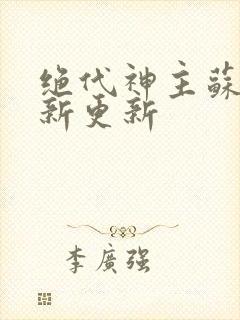 绝代神主蘇
新更新
李廣强